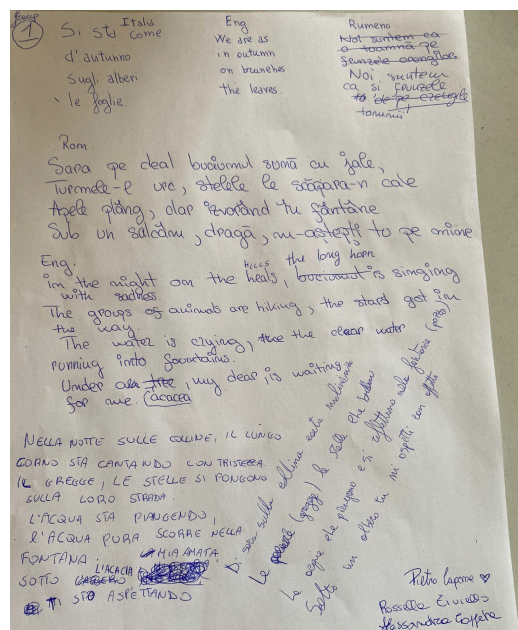 1
Italia
Si sta come
d'autunno
sugli alberi
le foglie
Eng
We are as
in outumn
on branches
the leaves
Rumeno
Noi suntem ca
o toamnă pe
frunzele crengilor
Noi suntem
ca si frunzele
de pe crengile
toamnii
Rom.
Sara pe deal buciumul sună cu jale,
Turmele-l urc, stelele le scapara-n cale
Apele plâng, clar izvorând în fântâne
Sub un salcâm, dragă, m-aștepți tu pe mine
Eng.
HILLS the long horn
im the might on the heals, buciumul is singing
with sadness.
The groups of animals are hiking, the stars get in
the way.
The water is crying, the clear water
running into fountains.
Under a tree, my dear, is waiting
for me. acacea
NELLA NOTTE SULLE COLLINE, IL LUNGO
CORNO STA CANTANDO CON TRISTEZZA.
IL GREGGE, LE STELLE SI PONGONO
SULLA LORO STRADA.
L'ACQUA STA PIANGENDO,
L'ACQUA PURA SCORRE NELLA
FONTANA.
LA MIA AMATA
SOTTO L'ACACIA
TI STO ASPETTANDO
Di sera sulla collina
Le (gregge) le stelle che
Le acque che piangono e si nella fontana (pozzo)
Sotto un albero tu mi aspetti
Pietro Capone
Rossella
Alessandra